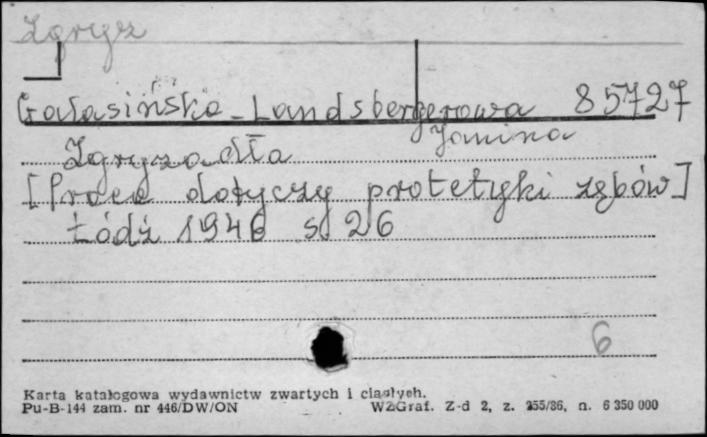 Zgryz
Gałasińska-Landsbergerowa 85727
Janina
Zgryzadła
[Praca dotyczy protetyki zębów]
Łódź 1946 s 26
6
Karta katalogowa wydawnictw zwartych i ciągłych.
Pu-B-144 zam. nr 446/DW/ON WZGraf. Z-d 2, z. 255/86, n. 6 350 000